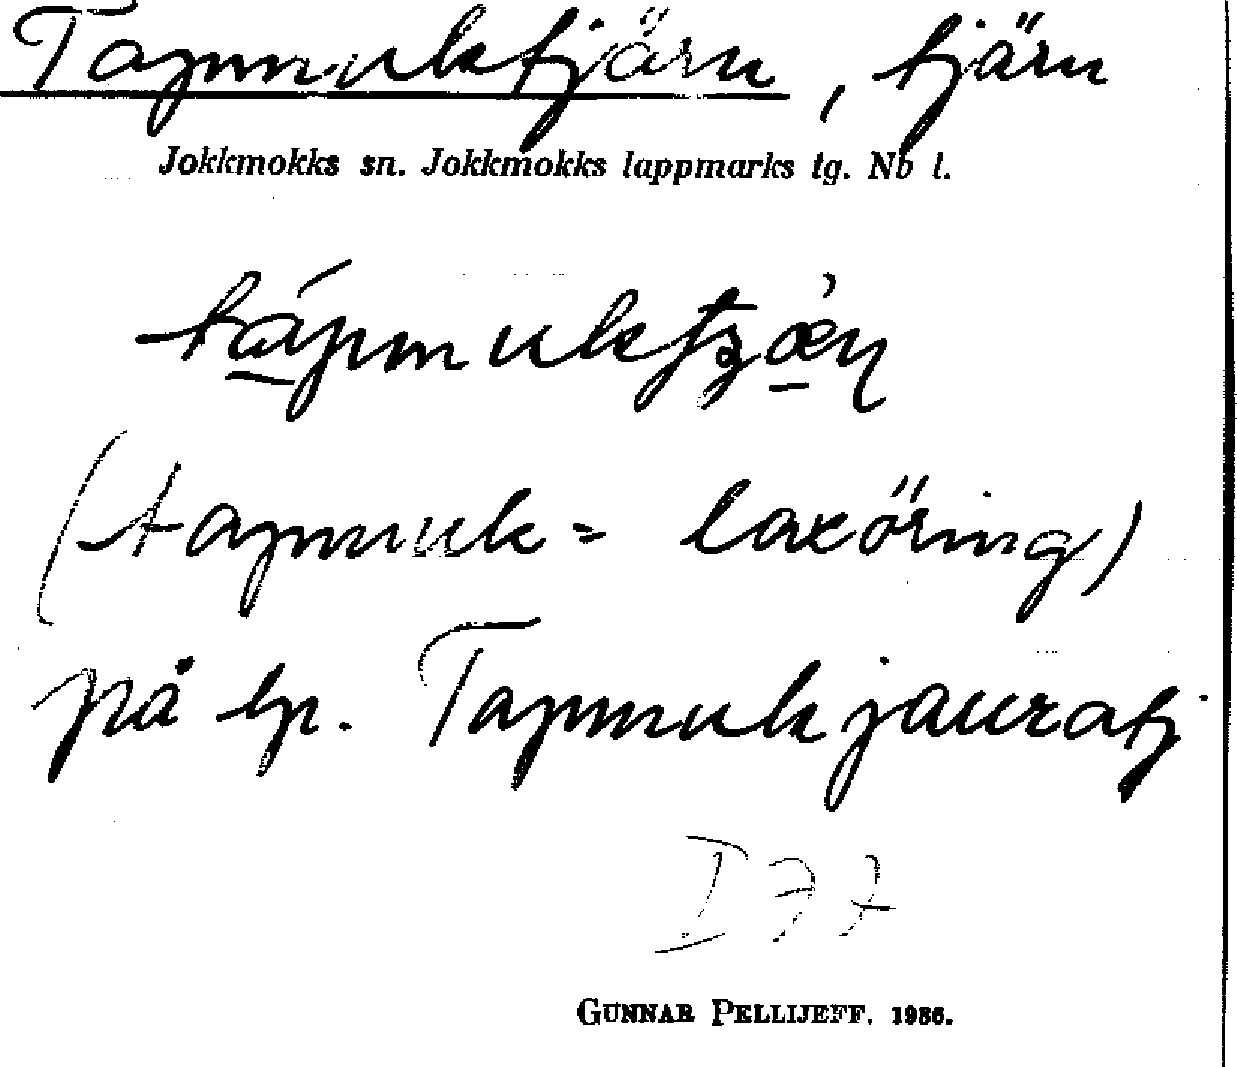 Tapmuktjärn, tjärn
Jokkmokks sn. Jokkmokks lappmarks tg. Nb l.
(tapmuk = laxöring)
på lp. Tapmukjauratj
I 77
GUNNAR PELLIJEFF. 1936.